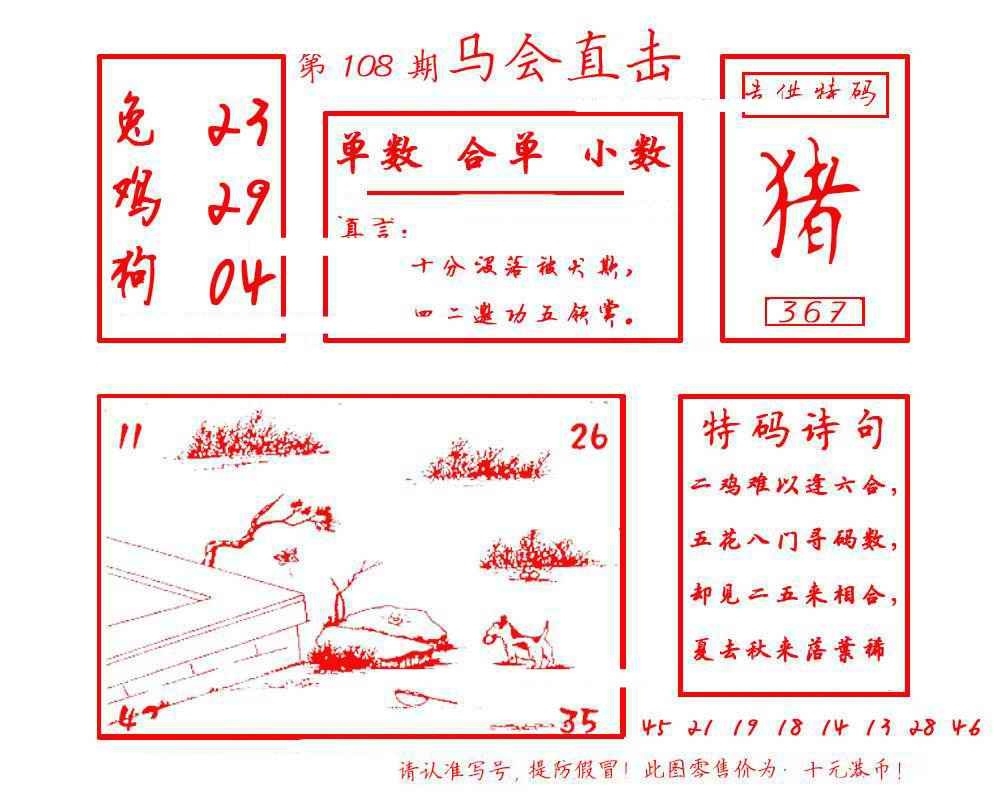 第 108 期 马会直击
兔 23
鸡 29
狗 04
单数 合单 小数
真言:
十分没落被犬欺,
四二邀功五领赏。
供特码
猪
367
11
26
35
特码诗句
二鸡难以逢六合,
五花八门寻码数,
却见二五来相合,
夏去秋来落葉稀
45 21 19 18 14 13 28 46
请认准写号,提防假冒!此图零售价为·十元港币!